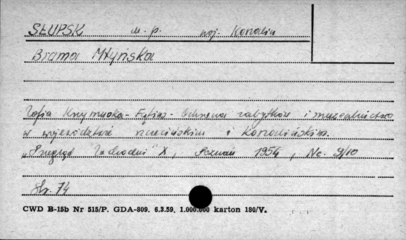 SŁUPSK m. p. woj. Koszalin
Brama Młyńska
Zofia Krzymuska-Fafius - Ochrona zabytków i muzealnictwo
w województwie szczecińskim i koszalińskim.
"Przegląd Zachodni" X, Poznań 1954, No. 9/10
Str. 74
CWD B-15b Nr 515/P. GDA-809. 6.3.59. 1.000.000 karton 180/V.